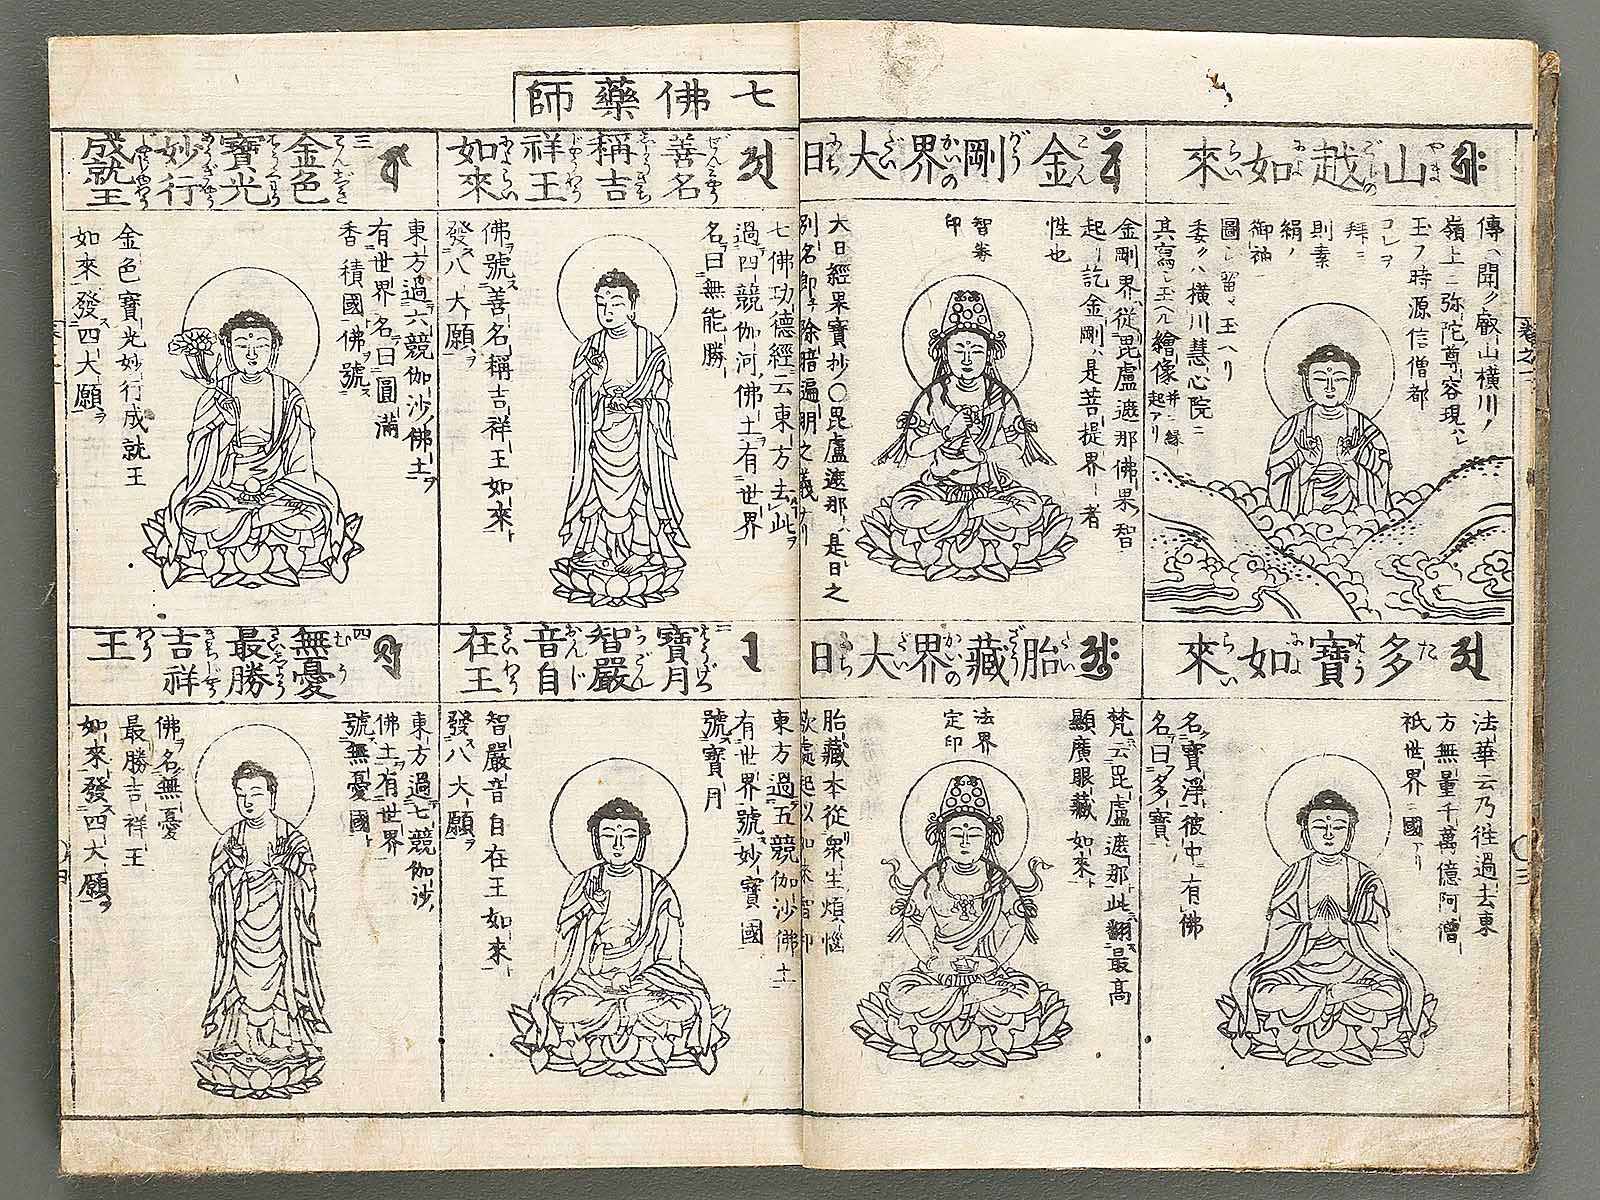 山越如來
やまごしのによらい
傳ヘ聞ク叡山横川ノ
嶺上ニ弥陀尊容現ハレ
玉フ時源信僧都
コレヲ
拜ミ
則素
絹ノ
御袖
圖シ留メ玉ヘリ
委クハ横川慧心院ニ
其寫シ玉ヘル繪像并ニ縁起アリ
多寶如來
たほうによらい
法華云乃徃過去東
方無量千萬億阿僧
祇世界ニ國アリ
名寶淨彼中有佛
名曰多寶
金剛界大日
こんがうかいのだいにち
金剛界從毘盧遮那佛果智
起リ訖金剛ハ是菩提界者
性也
智拳
印
大日經果寶抄〇毘盧遮那ハ是日之
別名即チ除暗遍明之義ナリ
胎藏界大日
たいざうかいのだいにち
梵云毘盧遮那此翻最高
顯廣眼藏如來
法界
定印
胎藏本從衆生煩惱
七佛藥師
善名稱吉祥王如來
七佛功德經云東方去此
過四競伽河佛土有世界
名曰無能勝
佛號善名稱吉祥王如來
發八大願
二
寶月智嚴音自在王
東方過五競伽沙佛土
有世界號妙寶國
號寶月
智嚴音自在王如來
發八大願
三
金色寶光妙行成就王
東方過六競伽沙佛土
有世界名曰圓滿
香積國佛號
金色寶光妙行成就王
如來發四大願
四
無憂最勝吉祥王
東方過七競伽沙
佛土有世界
號無憂國
佛名無憂
最勝吉祥王
如來發四大願